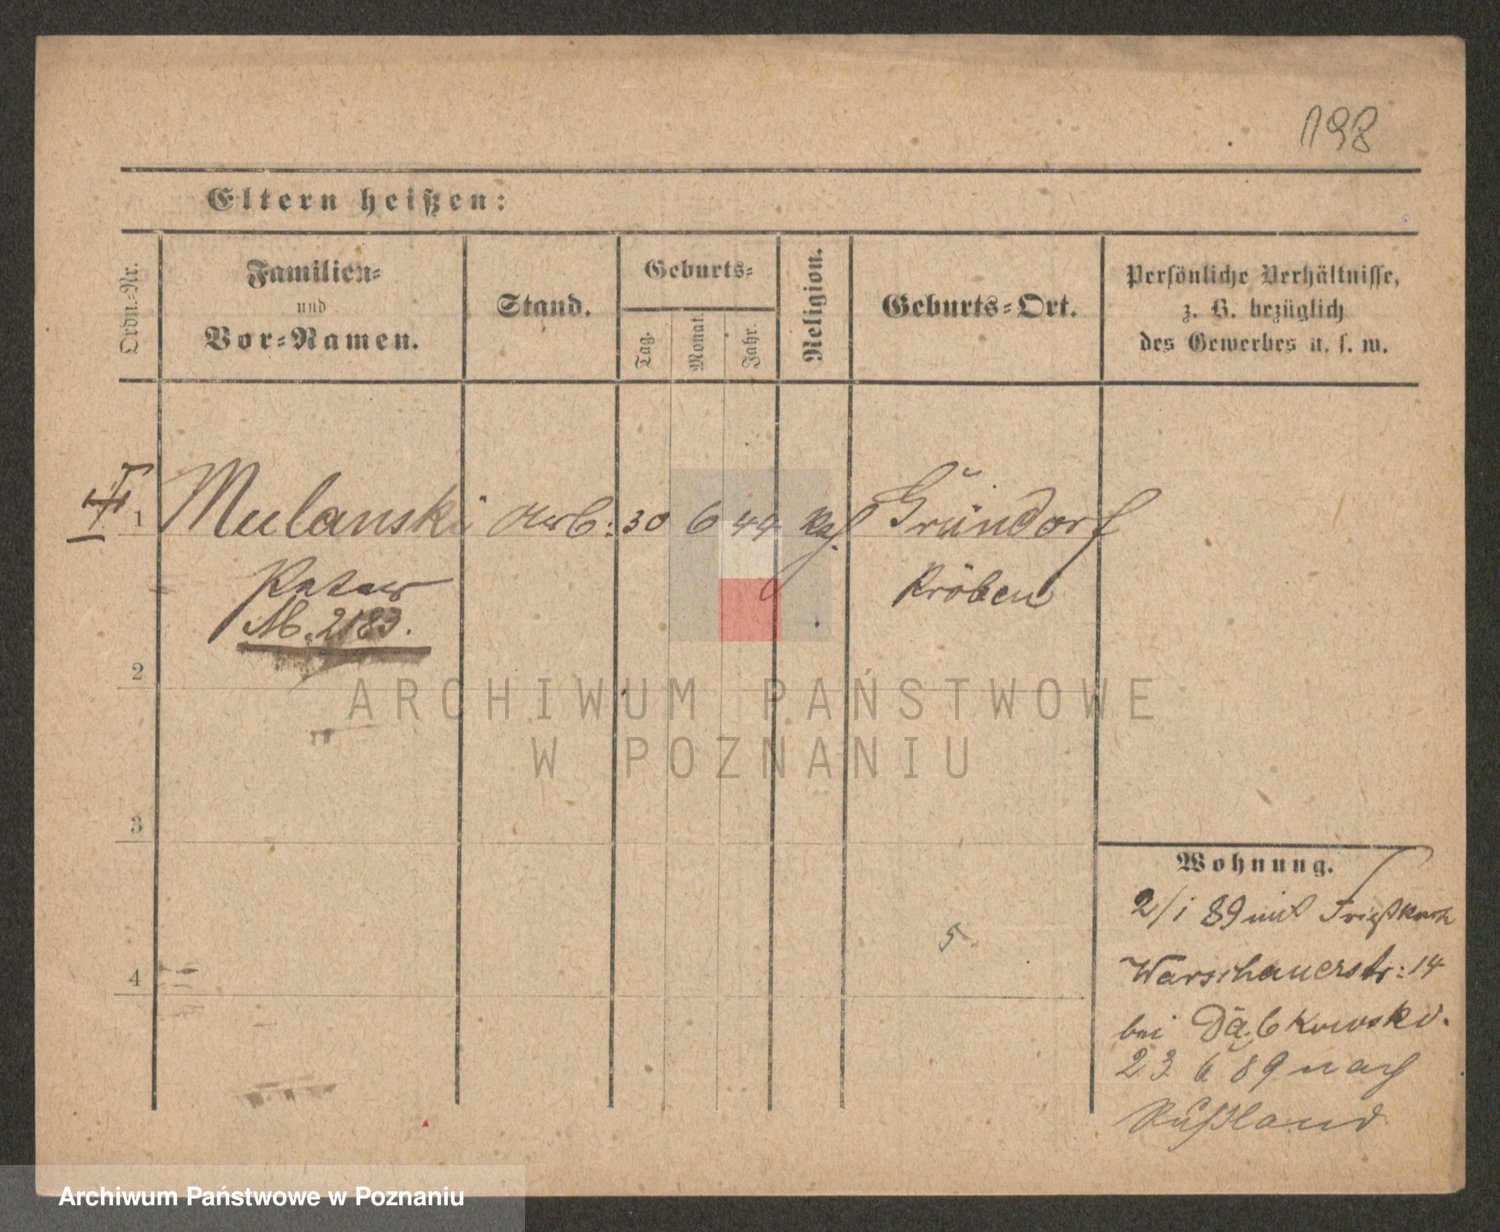 198
Eltern heißen:
Ordn.-Nr.
Familien-
und
Vor-Namen.
Stand.
Geburts-
Tag.
Monat.
Jahr.
Religion.
Geburts-Ort.
Persönliche Verhältnisse,
z. B. bezüglich
des Gewerbes u. s. w.
1 Mulanski Arb: 30 6 44 Kath. Gründorf
Kröben
M. 2183.
2
ARCHIWUM PAŃSTWOWE
W POZNANIU
3
Wohnung.
2/1 89 mit
Warschauerstr: 14
5
4
bei Dąbkowski.
23 6 89 nach
Rußland
Archiwum Państwowe w Poznaniu